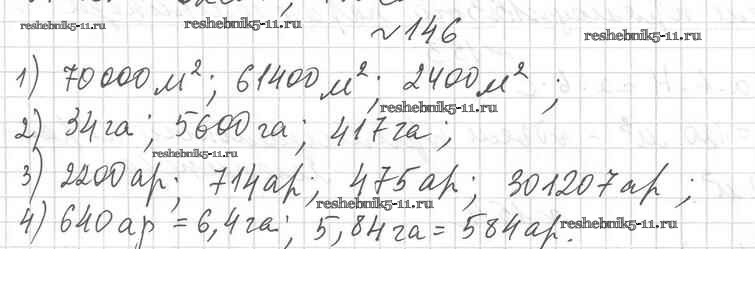 reshebnik5-11.ru reshebnik5-11.ru reshebnik5-11.ru
№146
1) 70000 м²; 61400 м²; 2400 м²;
reshebnik5-11.ru
2) 34 га; 5600 га; 417 га;
reshebnik5-11.ru
3) 2200 ар; 714 ар; 475 ар; 301207 ар;
reshebnik5-11.ru
4) 640 ар = 6,4 га; 5,84 га = 584 ар.
reshebnik5-11.ru